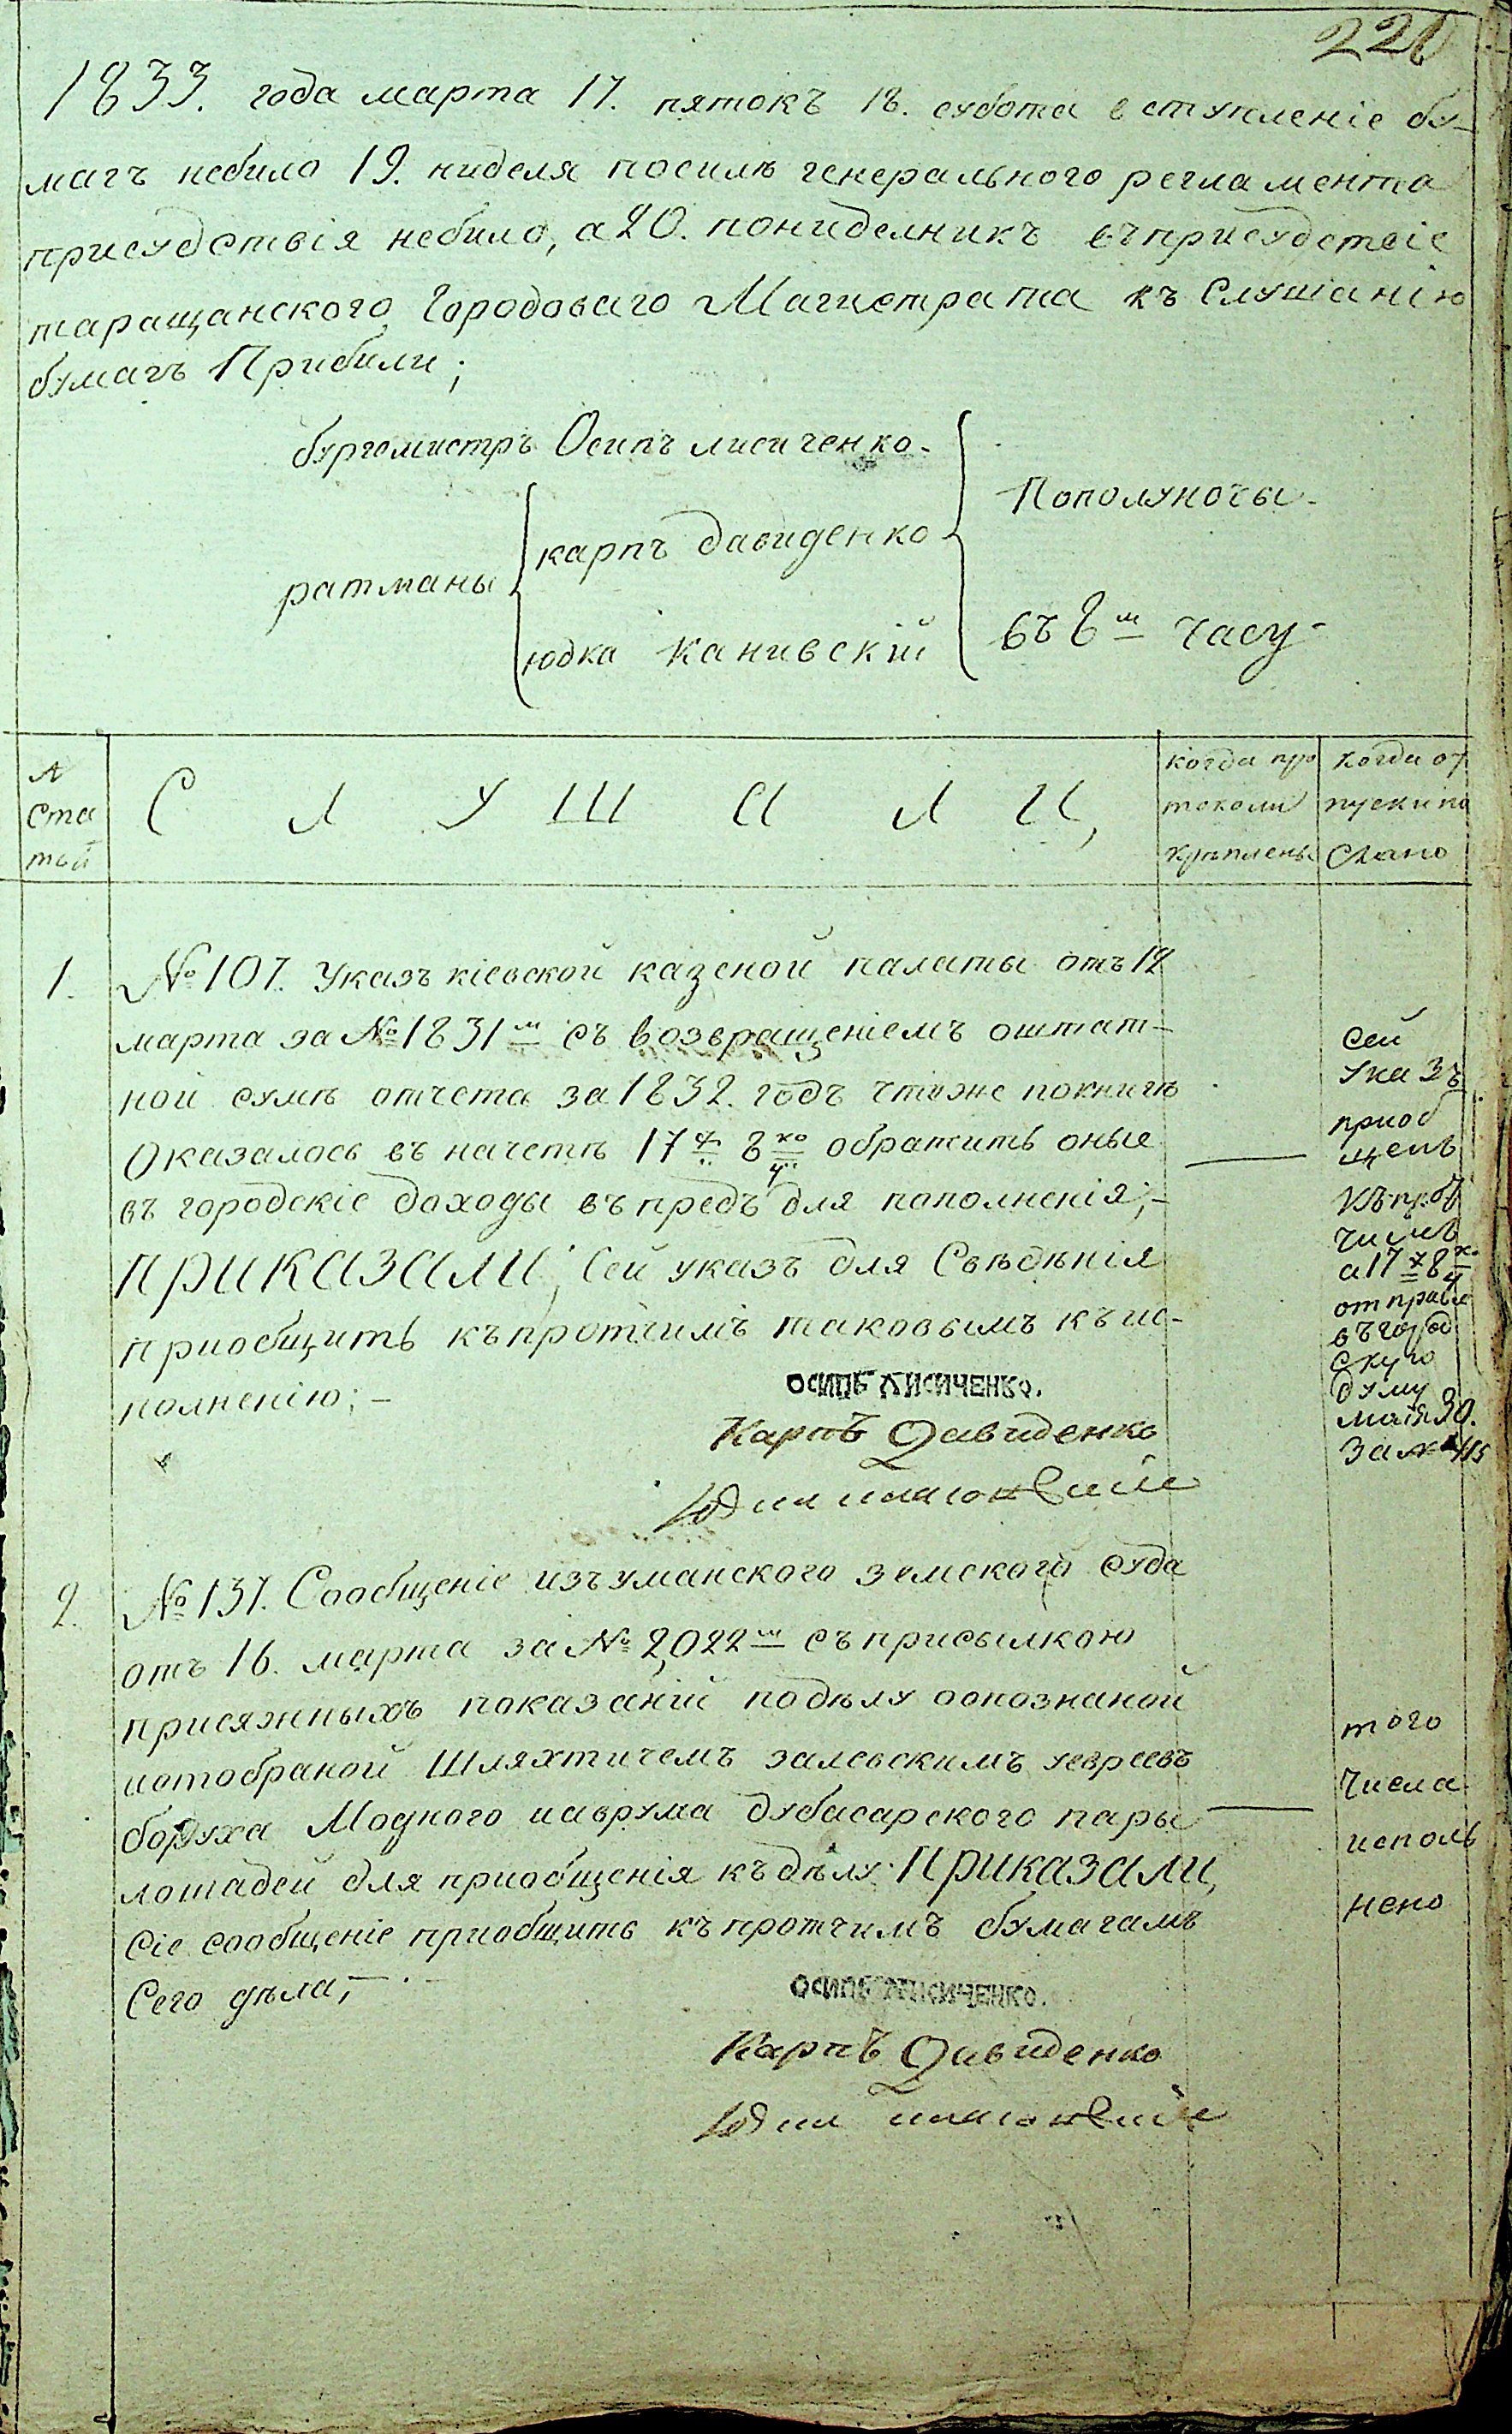 220
1833. года марта 17. пятокъ 18. субота вступленіе бу-
магъ небило 19. ниделя посилѣ генерального регламента
присудствія небило, а 20. пониделникъ въприсудствіе
таращанского Городоваго Магистрата къ Слушанію
бумагъ Прибили;
бургомистръ Осипъ лисиченко.
ратманы карпъ давиденко
юдка каневскій
Пополуночы.
въ 8м часу
№ Ста тьи
С Л У Ш А Л И,
когда про токоли крѣплены
когда от пуски по слано
1.
№ 107. Указъ кіевской казеной палаты отъ 12
марта за № 1831м съ возвращеніемъ оштат-
ной сумѣ отчета за 1832. годъ чтоже покнигѣ
Оказалось въ начетѣ 17 8 обратить оные
въ городскіе доходы въпредъ для пополненія;-
ПРИКАЗАЛИ, Сей указъ для Свѣдѣнія
приобщить къпротчимъ таковымъ къис-
полненію; -
Осипъ Лисиченко.
Карпъ Давиденко
сей
Указъ
приоб
щенъ
къ
а 17 8
отправле
въгород
скую
думу
мая 30.
за № 415
2.
№ 137. Сообщеніе изъуманского земского суда
отъ 16. марта за № 2,022м съприсылкою
присяжныхъ показаній подѣлу оопознаной
иотобраной Шляхтичемъ залевскимъ уевреевъ
боруха Модного иаврума дубасарского пары
лошадей для приобщенія къдѣлу: Приказали,
Сіе сообщеніе приобщить къпротчимъ бумагамъ
Сего дѣла;
Осипъ Лисиченко.
Карпъ Давиденко
того
числа
исполь
нено